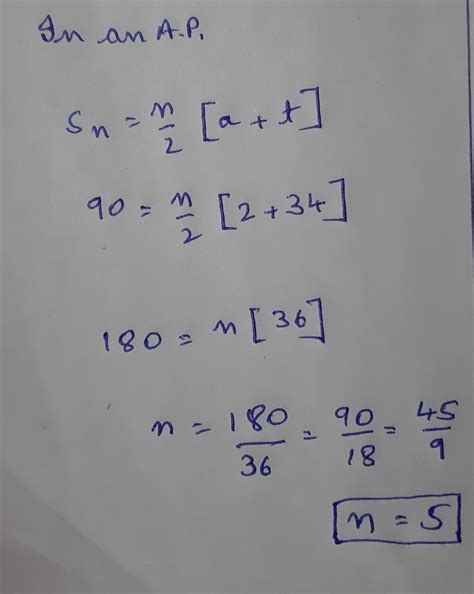 In an A.P.
Sn = n/2 [a + t]
90 = n/2 [2+34]
180 = n [36]
n = 180/36 = 90/18 = 45/9
n = 5